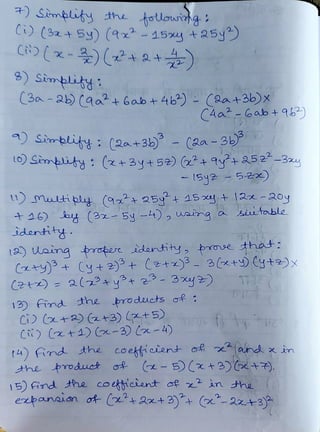 7) Simplify the following :
(i) (3x + 5y) (9x² - 15xy + 25y²)
(ii) (x - 2/x) (x² + 2 + 4/x²)
8) Simplify :
(3a - 2b) (9a² + 6ab + 4b²) - (2a + 3b) x
(4a² - 6ab + 9b²)
9) Simplify : (2a + 3b)³ - (2a - 3b)³
10) Simplify : (x + 3y + 5z) (x² + 9y² + 25z² - 3xy
- 15yz - 5zx)
11) Multiply (9x² + 25y² + 15xy + 12x - 20y
+ 16) by (3x - 5y - 4), using a suitable
identity.
12) Using proper identity, prove that :
(x+y)³ + (y+z)³ + (z+x)³ - 3(x+y)(y+z) x
(z+x) = 2(x³ + y³ + z³ - 3xyz)
13) Find the products of :
(i) (x + 2) (x + 3) (x + 5)
(ii) (x + 1) (x - 3) (x - 4)
14) Find the coefficient of x² and x in
the product of (x - 5) (x + 3) (x + 7).
15) Find the coefficient of x² in the
expansion of (x² + 2x + 3)² + (x² - 2x + 3)²